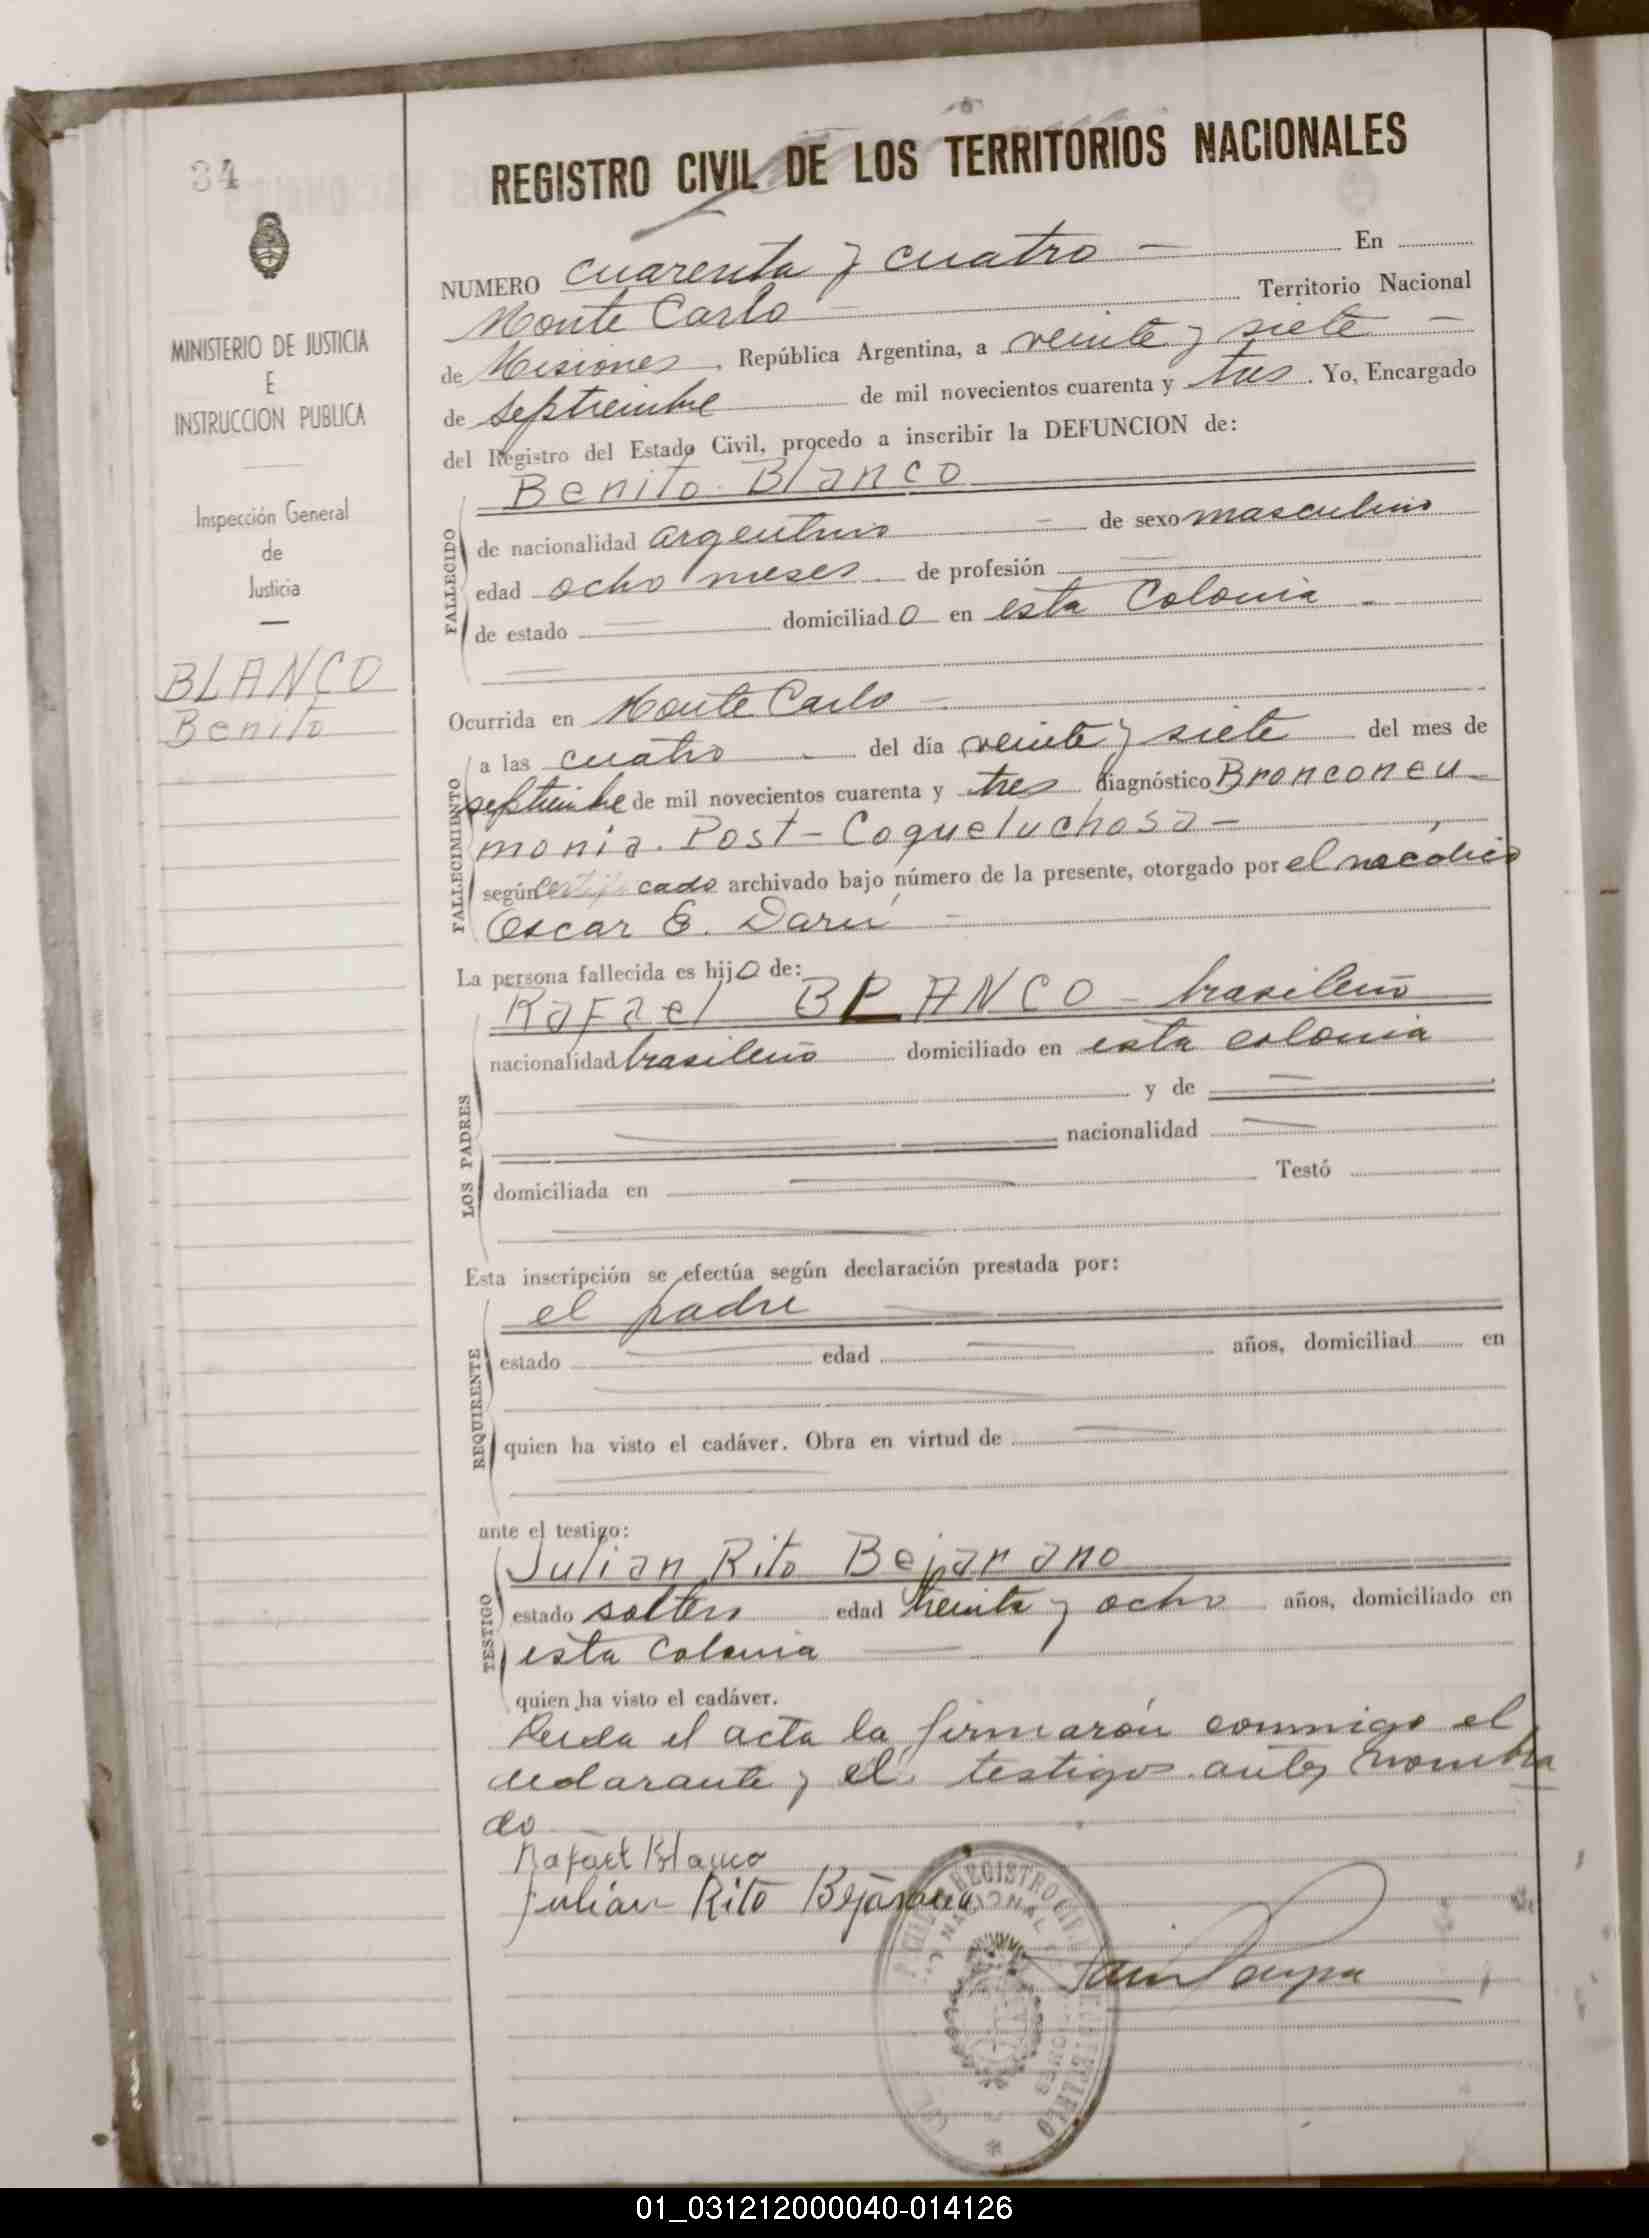 34
REGISTRO CIVIL DE LOS TERRITORIOS NACIONALES
MINISTERIO DE JUSTICIA
E
INSTRUCCION PUBLICA
Inspección General
de
Justicia
BLANCO
Benito
NUMERO cuarenta y cuatro — En
Monte Carlo — Territorio Nacional
de Misiones, República Argentina, a veinte y siete —
de septiembre de mil novecientos cuarenta y tres. Yo, Encargado
del Registro del Estado Civil, procedo a inscribir la DEFUNCION de:
Benito Blanco
FALLECIDO
de nacionalidad argentino — de sexo masculino
edad ocho meses de profesión —
de estado — domiciliado en esta Colonia -
Ocurrida en Monte Carlo —
FALLECIMIENTO
a las cuatro - del día veinte y siete del mes de
septiembre de mil novecientos cuarenta y tres diagnóstico Bronconeu-
monia. Post-Coqueluchosa-
según certificado archivado bajo número de la presente, otorgado por el médico
Oscar E. Darú —
La persona fallecida es hijo de:
Rafael BLANCO - brasileño
LOS PADRES
nacionalidad brasileño domiciliado en esta colonia
y de —
nacionalidad —
domiciliada en — Testó
Esta inscripción se efectúa según declaración prestada por:
el padre
REQUIRENTE
estado — edad — años, domiciliad en
quien ha visto el cadáver. Obra en virtud de —
ante el testigo:
Julian Rito Bejarano
TESTIGO
estado soltero edad treinta y ocho años, domiciliado en
esta Colonia —
quien ha visto el cadáver.
Leida el acta la firmarón conmigo el
declarante y el testigo antes nombra
do
Rafael Blanco
Julian Rito Bejarano
REGISTRO CIVIL
01_031212000040-014126